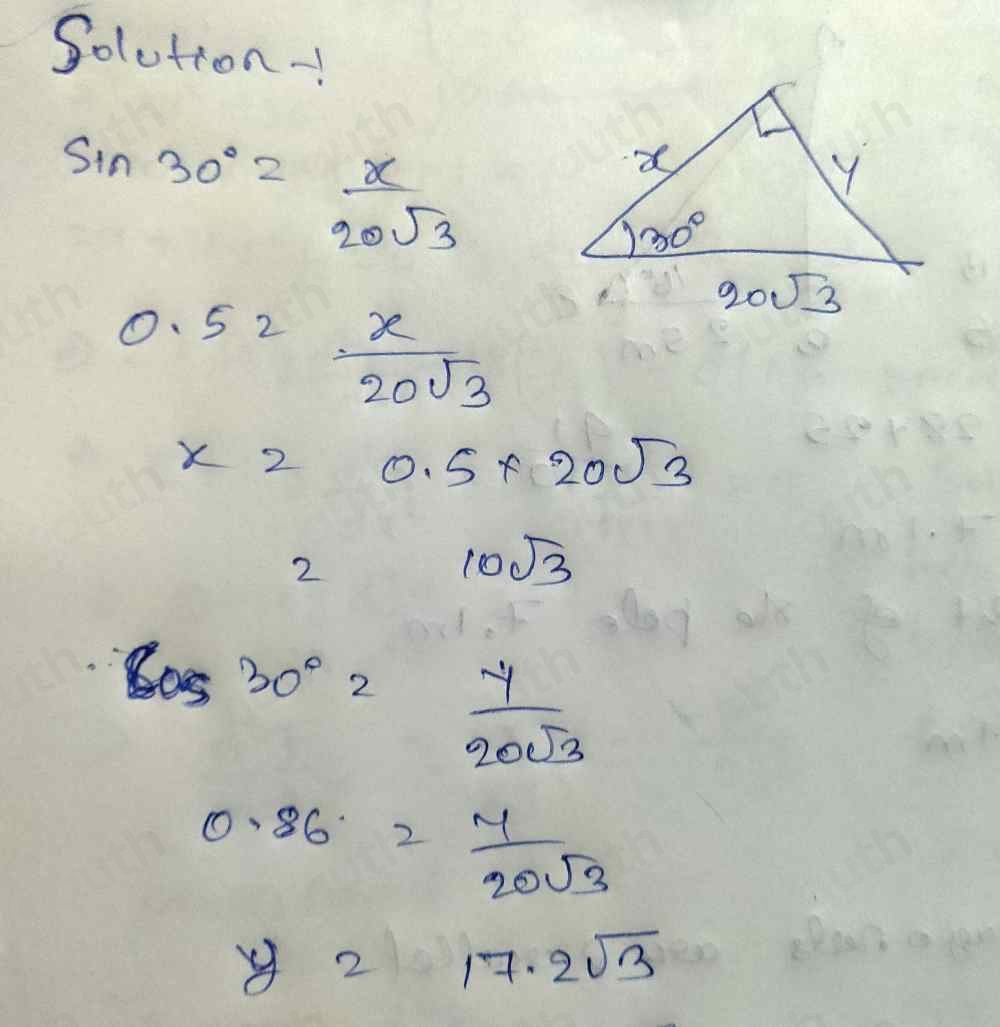 Solution -!
Sin 30° = x / 20√3
x
y
30°
20√3
0.5 = x / 20√3
x = 0.5 × 20√3
= 10√3
Cos 30° = y / 20√3
0.86 = y / 20√3
y = 17.2√3